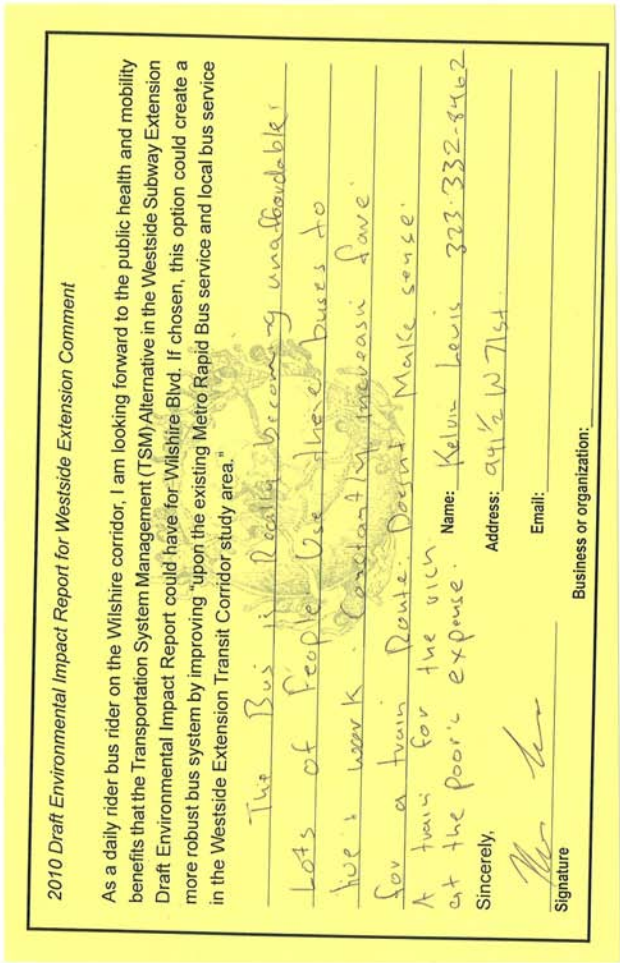 2010 Draft Environmental Impact Report for Westside Extension Comment
As a daily rider bus rider on the Wilshire corridor, I am looking forward to the public health and mobility
benefits that the Transportation System Management (TSM) Alternative in the Westside Subway Extension
Draft Environmental Impact Report could have for Wilshire Blvd. If chosen, this option could create a
more robust bus system by improving "upon the existing Metro Rapid Bus service and local bus service
in the Westside Extension Transit Corridor study area."
The Bus is Really becoming unaffordable.
Lots of People Use these buses to
live & work. Constantly increasin fare
for a train Route. Doesnt Make sense.
A train for the rich
at the poor's expense.
Sincerely,
Name: Kelvin Lewis 323-332-8462
Address: 941½ W 71st.
Email:
Signature
Business or organization: